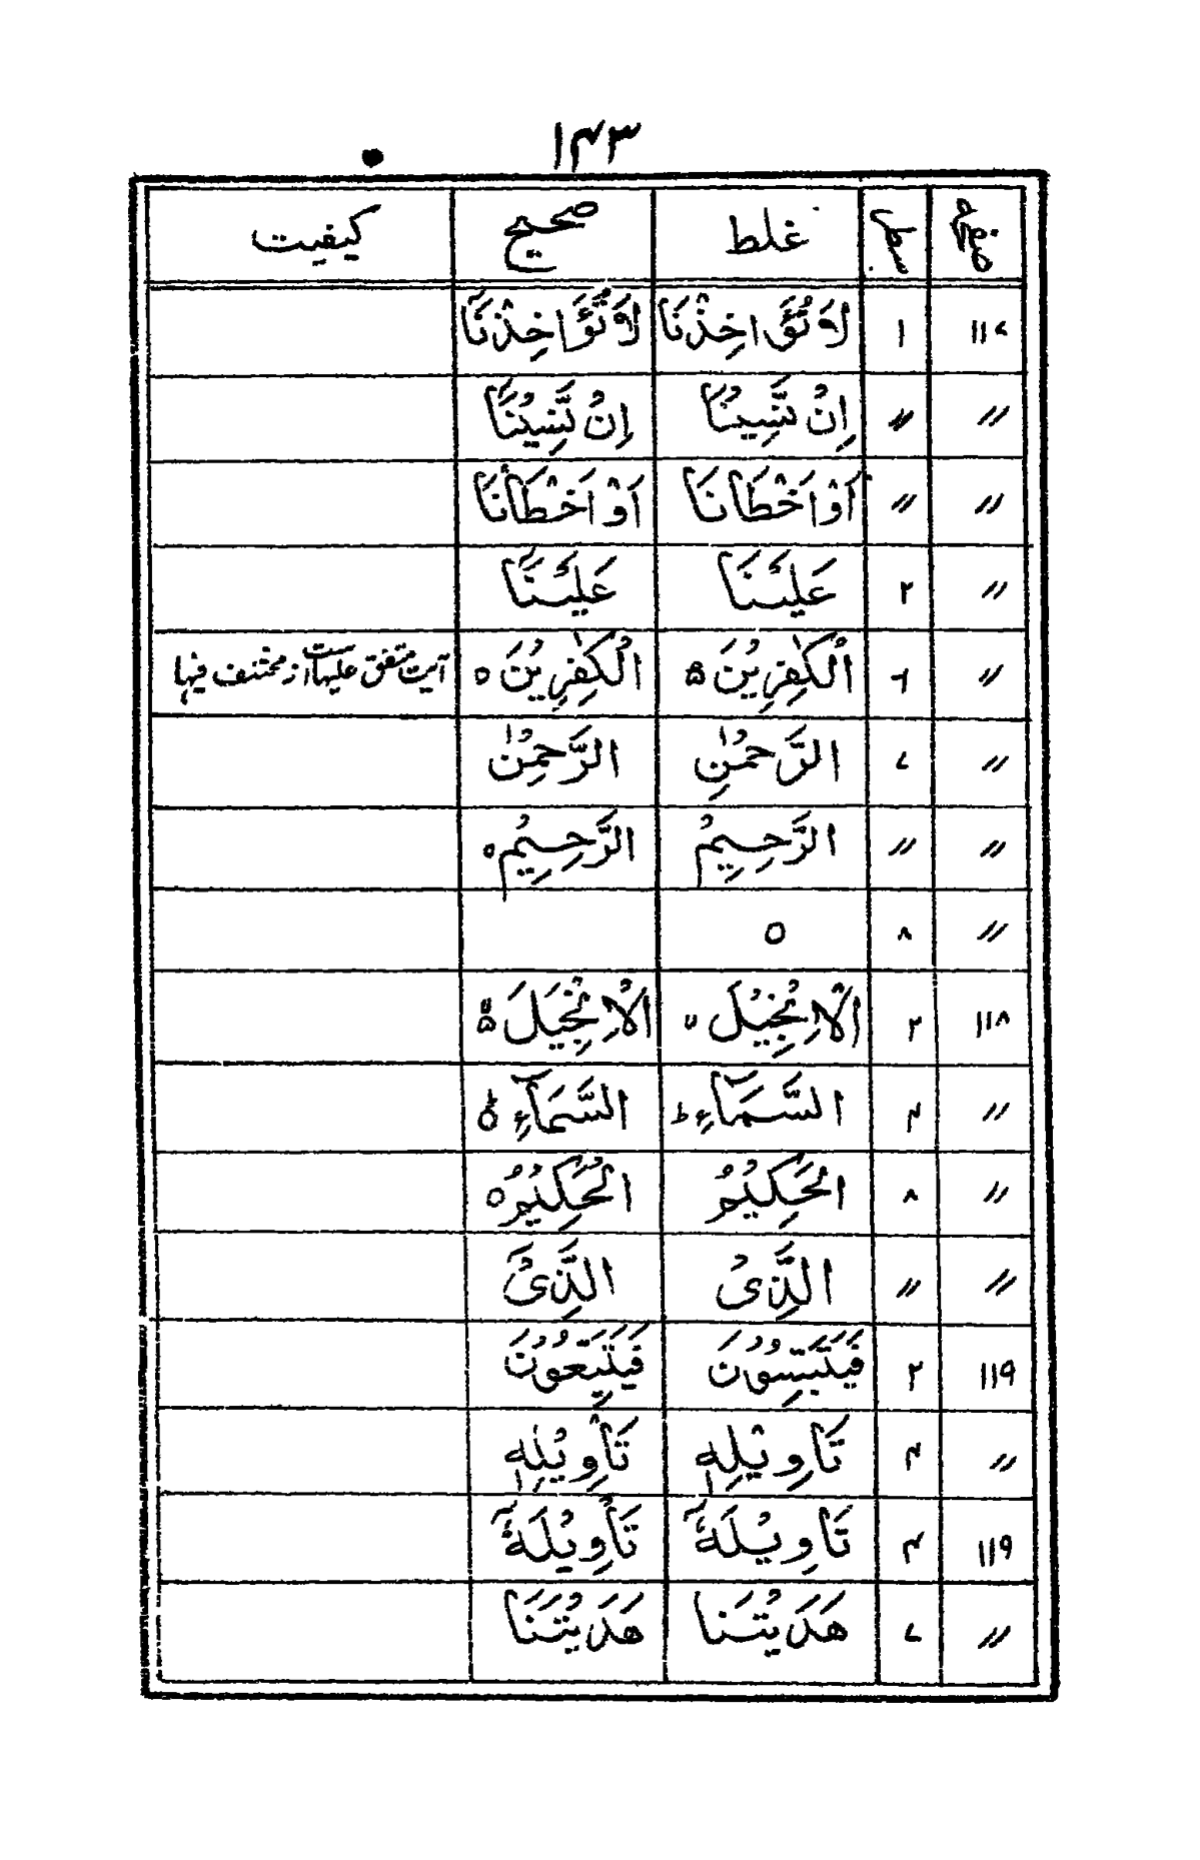 ۱۴۳
صفحہ سطر غلط صحیح کیفیت
۱۱۷ ۱ لَا تُؤَاخِذْنَا لَا تُؤَاخِذْنَآ
〃 〃 اِنْ نَّسِيْنَا اِنْ نَّسِيْنَآ
〃 〃 اَوْ اَخْطَانَا اَوْ اَخْطَأْنَا
〃 ۲ عَلَيْنَا عَلَيْنَآ
〃 ۶ الْكٰفِرِيْنَ ۵ الْكٰفِرِيْنَ ○ آیت متفق علیہا است از مختلف فیہا
〃 ۷ الرَّحْمٰنِ الرَّحْمٰنِ
〃 〃 الرَّحِيْمِ الرَّحِيْمِ ○
〃 ۸ ○
۱۱۸ ۲ الْاِنْجِيْلَ ۙ الْاِنْجِيْلَ ۵ۙ
〃 ۴ السَّمَآءِ ط السَّمَآءِ ○ط
〃 ۸ الْحَكِيْمُ الْحَكِيْمُ ○
〃 〃 الَّذِىْ الَّذِىْٓ
۱۱۹ ۲ فَيَتَّبِسُوْنَ فَيَتَّبِعُوْنَ
〃 ۴ تَاوِيْلِهٖ تَأْوِيْلِهٖ
۱۱۹ ۴ تَاوِيْلَهٗٓ تَأْوِيْلَهٗٓ
〃 ۷ هَدَيْتَنا هَدَيْتَنَا